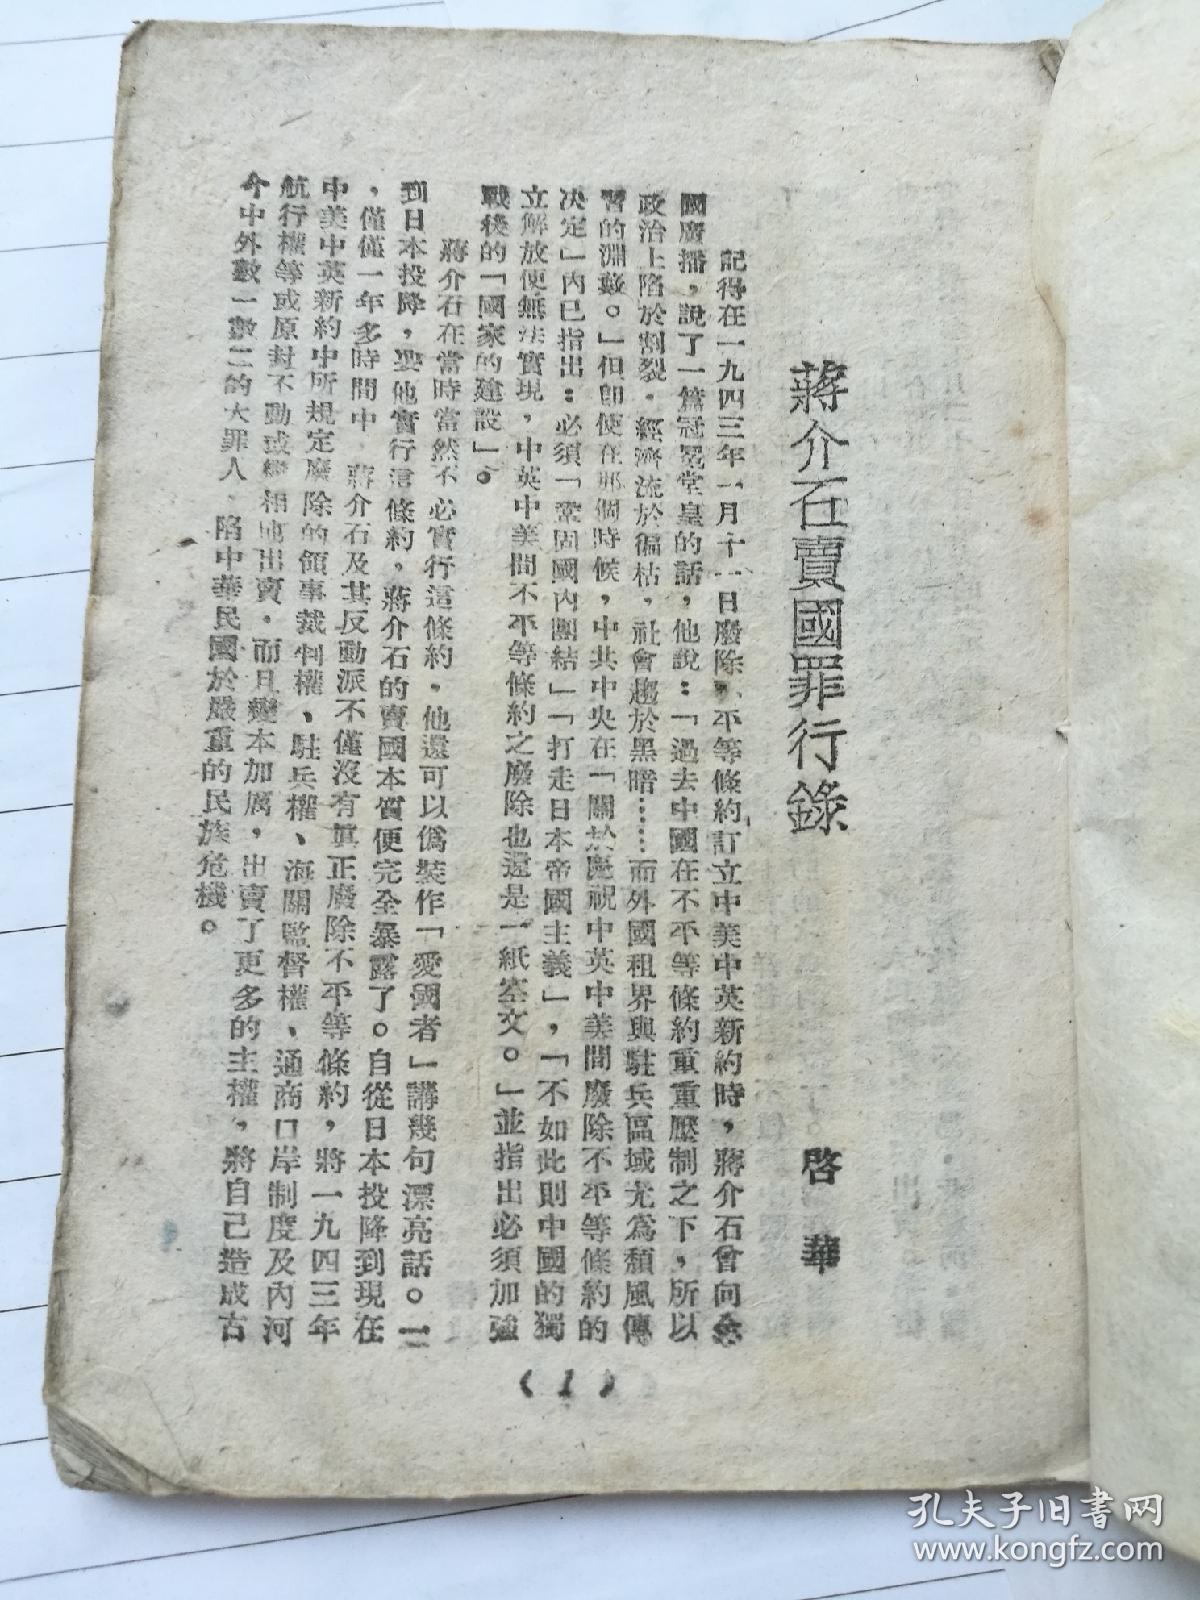 蔣介石賣國罪行錄
啓華
記得在一九四三年一月十一日廢除不平等條約訂立中美中英新約時，蔣介石曾向全
國廣播，說了一篇冠冕堂皇的話，他說：「過去中國在不平等條約重重壓制之下，所以
政治上陷於割裂，經濟流於偏枯，社會趨於黑暗……而外國租界與駐兵區域尤為頹風傳
習的淵藪。」但即使在那個時候，中共中央在「關於慶祝中英中美間廢除不平等條約的
決定」內已指出：必須「鞏固國內團結」「打走日本帝國主義」，「不如此則中國的獨
立解放便無法實現，中英中美間不平等條約之廢除也還是一紙空文。」並指出必須加強
戰後的「國家的建設」。
蔣介石在當時當然不必實行這條約，他還可以偽裝作「愛國者」講幾句漂亮話。一
到日本投降，要他實行這條約，蔣介石的賣國本質便完全暴露了。自從日本投降到現在
，僅僅一年多時間中，蔣介石及其反動派不僅沒有真正廢除不平等條約，將一九四三年
中美中英新約中所規定廢除的領事裁判權、駐兵權、海關監督權、通商口岸制度及內河
航行權等或原封不動或變相地出賣，而且變本加厲，出賣了更多的主權，將自己造成古
今中外數一數二的大罪人，陷中華民國於嚴重的民族危機。
（1）
孔夫子旧书网
www.kongfz.com